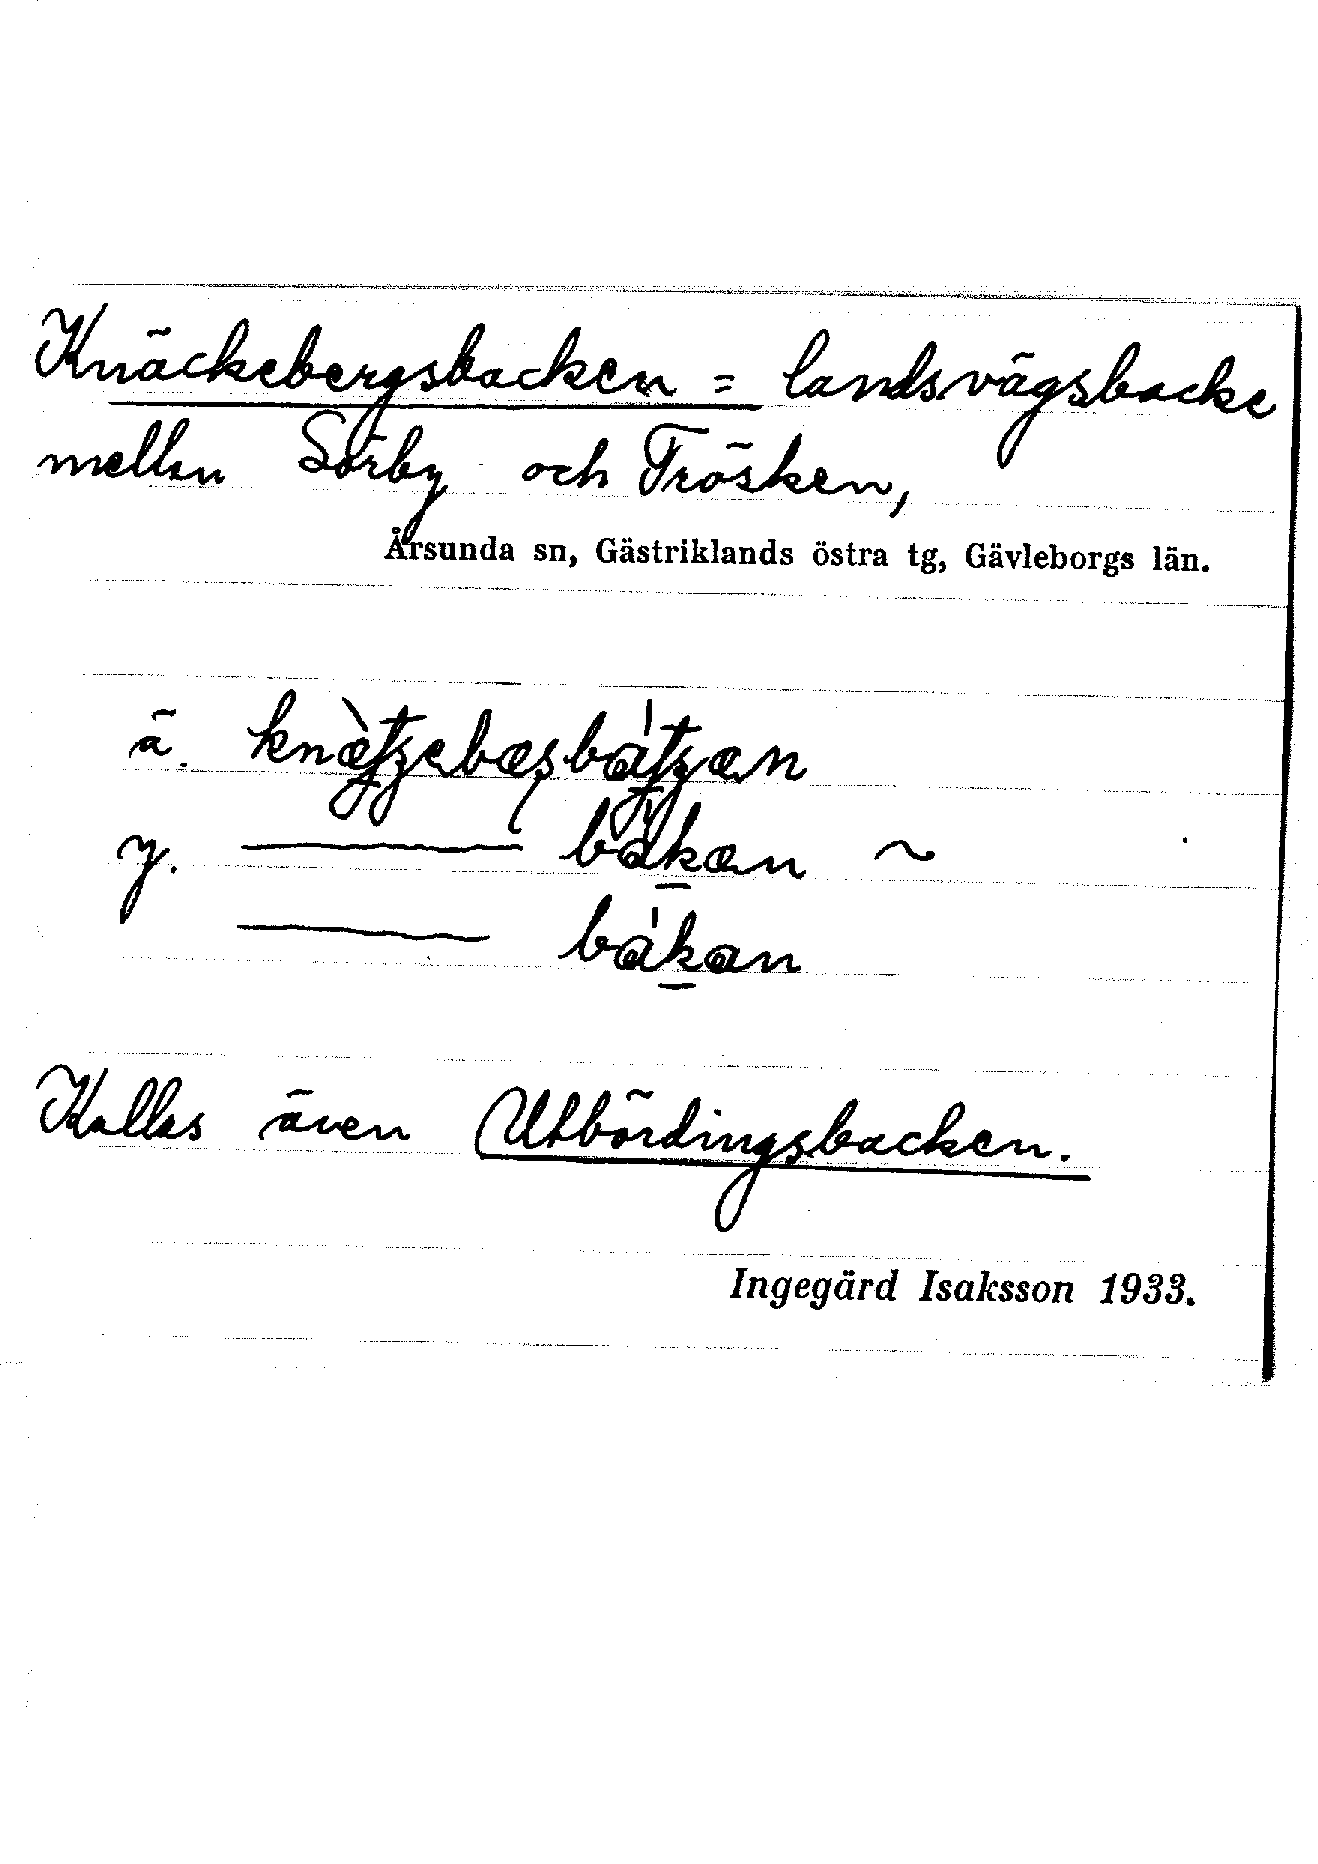 Knäckebergsbacken = landsvägsbacke
mellan Sörby och Trösken,
Årsunda sn, Gästriklands östra tg, Gävleborgs län.
ä.
y. bákan ~
bákan
Kallas även Utbördingsbacken.
Ingegärd Isaksson 1933.